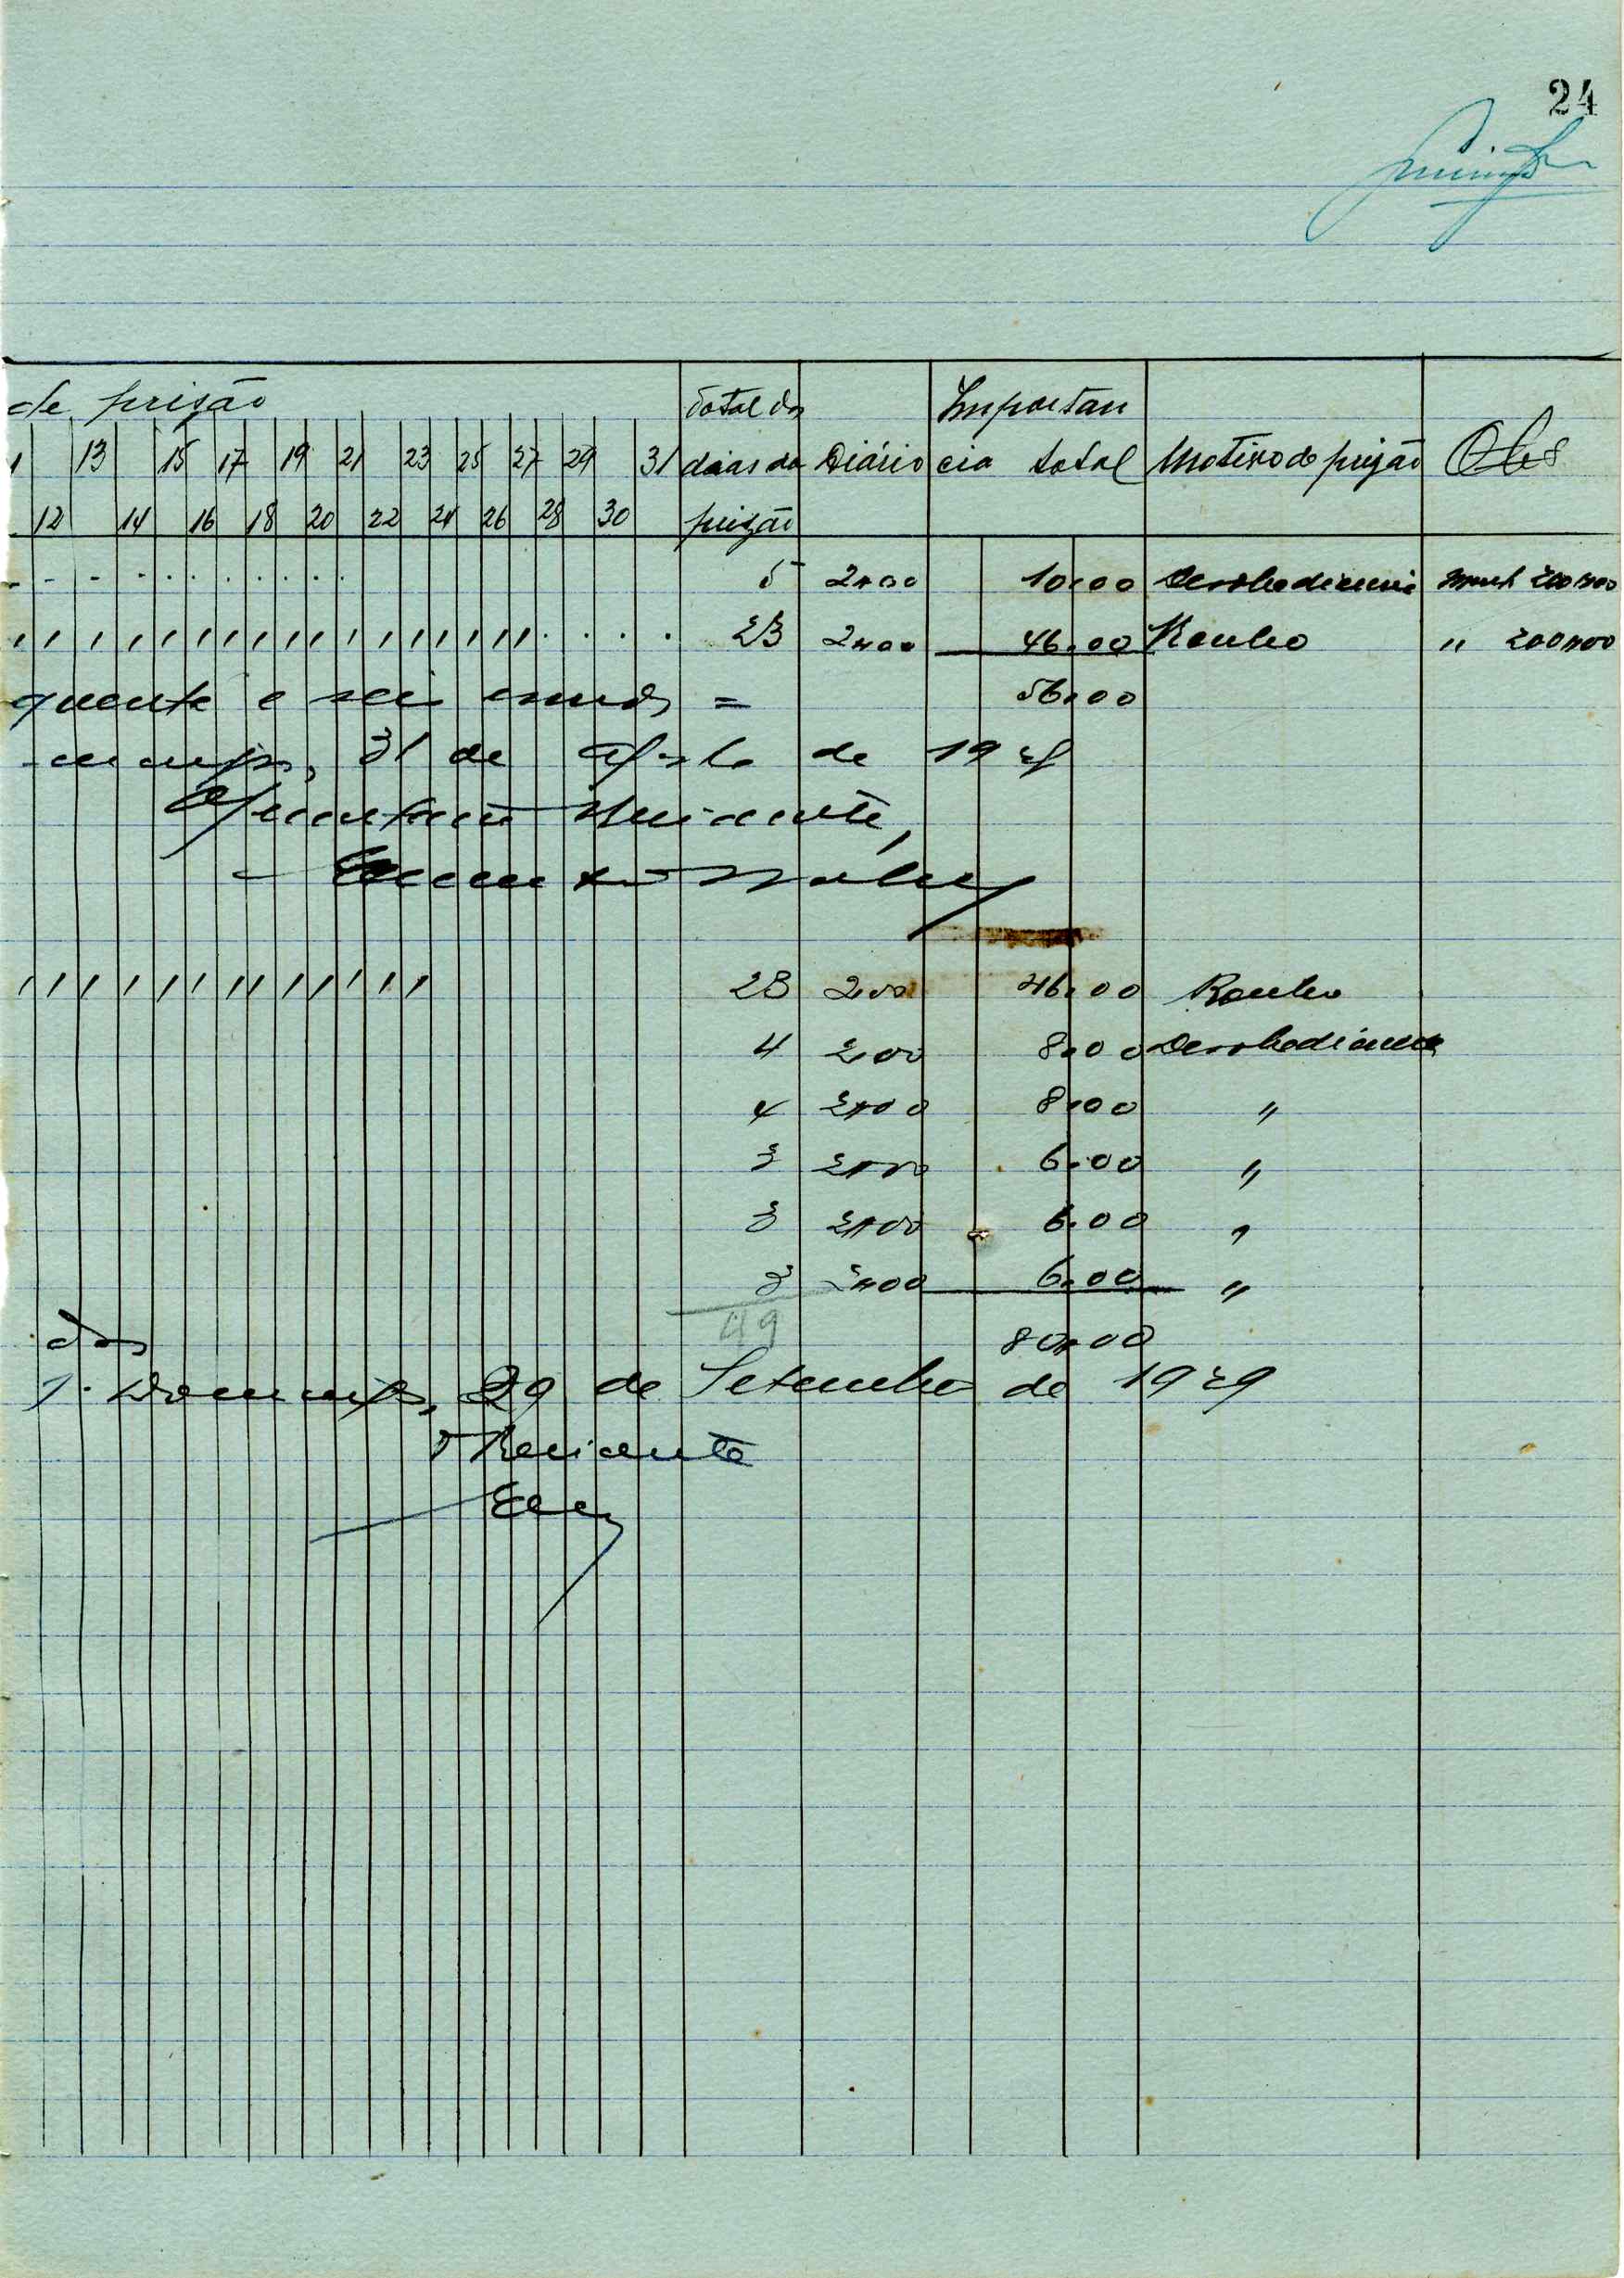 24
de prisão Total da Importan
1 13 15 17 19 21 23 25 27 29 31 dias da Diário cia total Motivo de prisão Obs
12 14 16 18 20 22 24 26 28 30 prisão
5 2$00 10.00 Desobediencia 200$00
23 2$00 46.00 Roubo " 200$00
quenta e seis escudos = 56.00
31 de Agosto de 19
28 2.00 46.00 Roubo
4 2.00 8.00 Desobediencia
4 2$00 8.00 "
3 2$00 6.00 "
3 2$00 6.00 "
3 2$00 6.00 "
49
dos 80.00
29 de Setembro de 1929